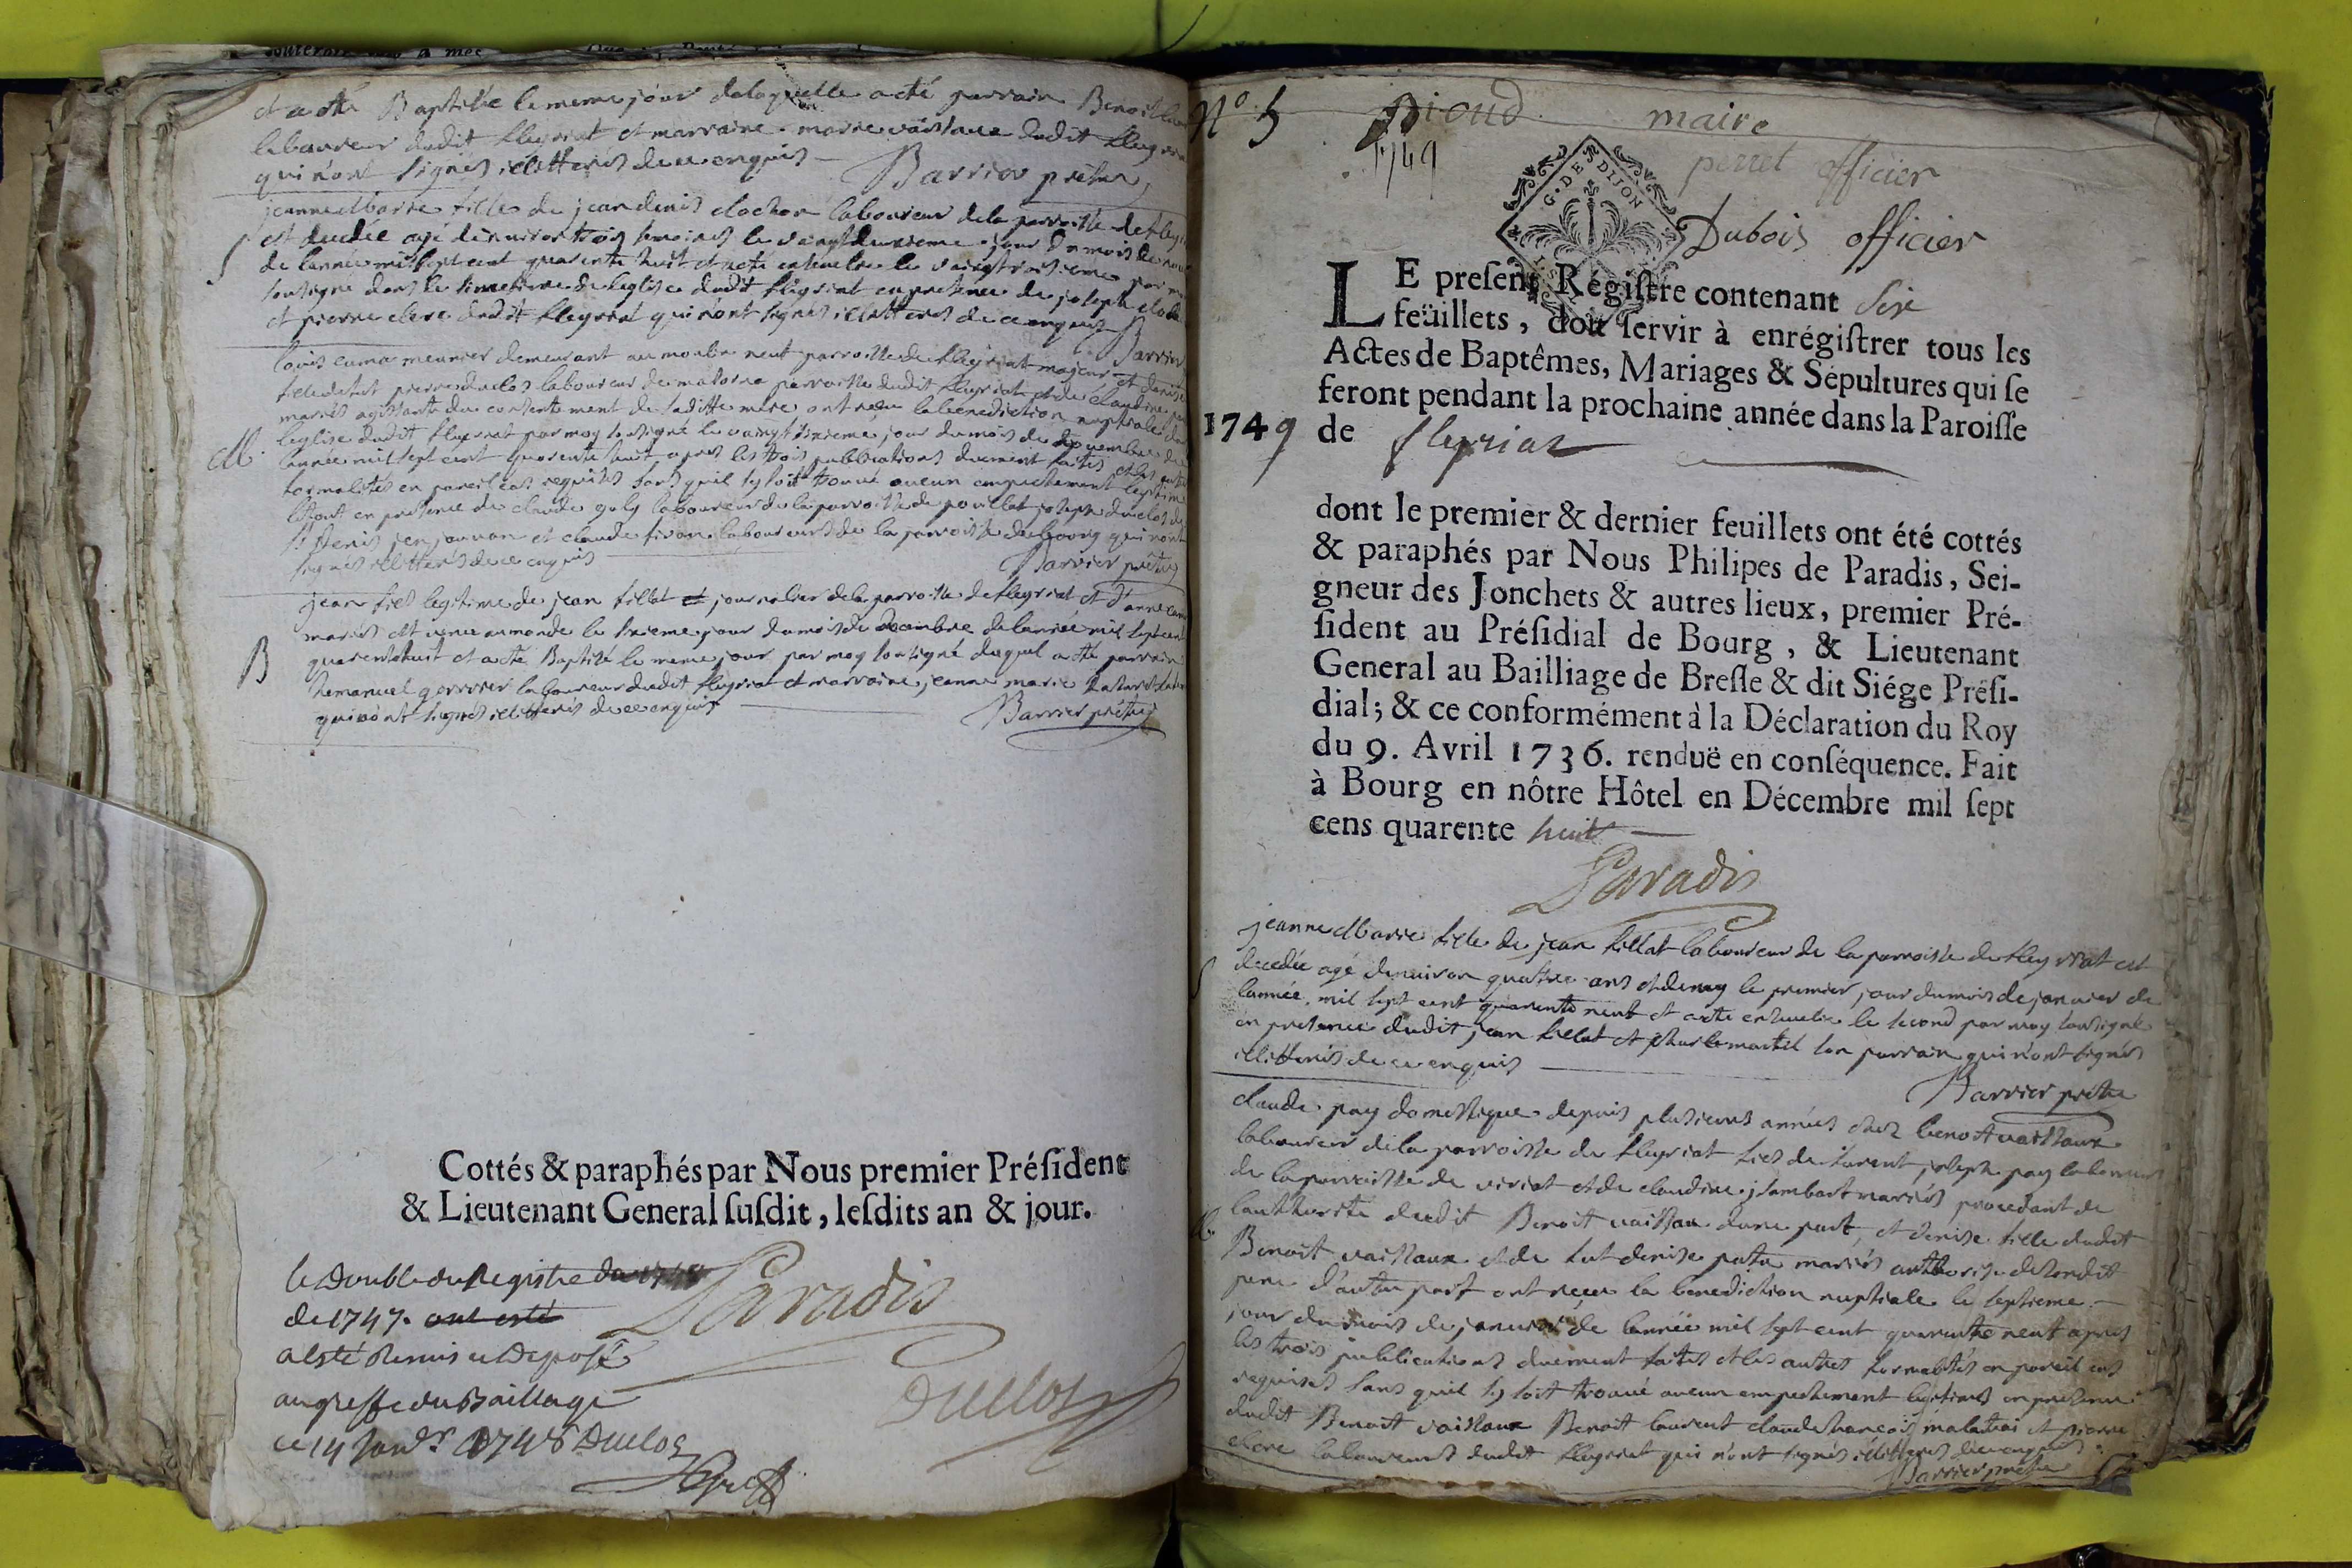 et a été Baptisée le meme jour de laquelle a été parrain Benoit
laboureur dudit fleyriat et marraine marie vaissaux dudit
qui n'ont signés illitterés de ce enquis
Barrier prêtre
jeanne Marie fille de jean denis clochon laboureur de la parroisse de
est decedée agé denviron trois semaines le vaingt deuxieme jour du mois de
de lannée mil sept cent quarente huit et a eté ensevelie le vaingt troisieme par
soussigné dans le simetiere de leglise dudit fleyriat en presence de joseph
et pierre clere dudit fleyriat qui n'ont signés illitterés de ce enquis
Barrier
louis cuma meunier demeurant au moulin neuf parroisse de fleyriat majeur et denise
fille defut pierre duclos laboureur de parroisse dudit fleyriat et de claudine
mariés agissante du consentement de saditte mere ont reçu la benediction nuptiale
leglise dudit fleyriat par moy soussigné le vaingt sixieme jour du mois de novembre
M. lannée mil sept cent quarente huit apres les trois publications duement faites et les
formalités en pareil cas requises sans quil sy soit trouvé aucun empechement legitime
le tout en presence de claude goly laboureur de la parroisse de pouillat joseph duclos
st denis jean jouvan et claude laboureurs de la parroisse de bourg qui n'ont
signés illitterés de ce enquis
Barrier prêtre
jean fils legitime de jean fillat journalier de la parroisse de fleyriat et d'anne
mariés est venu au monde le sixieme jour du mois de decembre de lannée mil sept cent
B quarente huit et a eté Baptisé le meme jour par moy soussigné duquel a été parrain
hemanuel laboureur dudit fleyriat et marraine jeanne marie
qui n'ont signés illitterés de ce enquis
Barrier prêtre
Cottés & paraphés par Nous premier Préſident
& Lieutenant General ſuſdit, leſdits an & jour.
le Double du Registre
de 1747. ont esté
Paradis
a esté Remis et Deposé
au greffe du Baillage
Duclos
ce 14 Janvr 1748 Duclos
N° 5
Pioud maire
1749
perret officier
G. DE DIJON
Dubois officier
LE preſent Régiſtre contenant Six
feüillets, doit ſervir à enrégiſtrer tous les
Actes de Baptêmes, Mariages & Sépultures qui ſe
feront pendant la prochaine année dans la Paroiſſe
1749 de fleyriat
dont le premier & dernier feuillets ont été cottés
& paraphés par Nous Philipes de Paradis, Sei-
gneur des Jonchets & autres lieux, premier Pré-
ſident au Préſidial de Bourg, & Lieutenant
General au Bailliage de Breſſe & dit Siége Préſi-
dial; & ce conformément à la Déclaration du Roy
du 9. Avril 1736. renduë en conſéquence. Fait
à Bourg en nôtre Hôtel en Décembre mil ſept
cens quarente huit
Paradis
jeanne Marie fille de jean fillat laboureur de la parroisse de fleyriat est
decedée agé denviron quattre ans et demy le premier jour du mois de janvier de
lannée mil sept cent quarente neuf et a eté ensevelie le second par moy soussigné
en presence dudit jean fillat et son parrain qui n'ont signés
illitterés de ce enquis
Barrier prêtre
claude pay domestique depuis plusieurs années chez benoit vaissaux
laboureur de la parroisse de fleyriat fils de furent joseph pay laboureur
de la parroisse de viriat et de claudine jsambart mariés procedant de
lauthorité dudit Benoit vaissau dune part, et denise fille dudit
M. Benoit vaissaux et de fut denise mariés authorisée desondit
pere d'autre part ont reçu la benediction nuptiale le septieme
jour du mois de janvier de lannée mil sept cent quarente neuf apres
les trois publications duement faites et les autres formalités en pareil cas
requises sans quil sy soit trouvé aucun empechement legitime en presence
dudit Benoit vaissaux Benoit laurent claude françois et pierre
clere laboureurs dudit fleyriat qui n'ont signés illitterés de ce enquis
Barrier prêtre